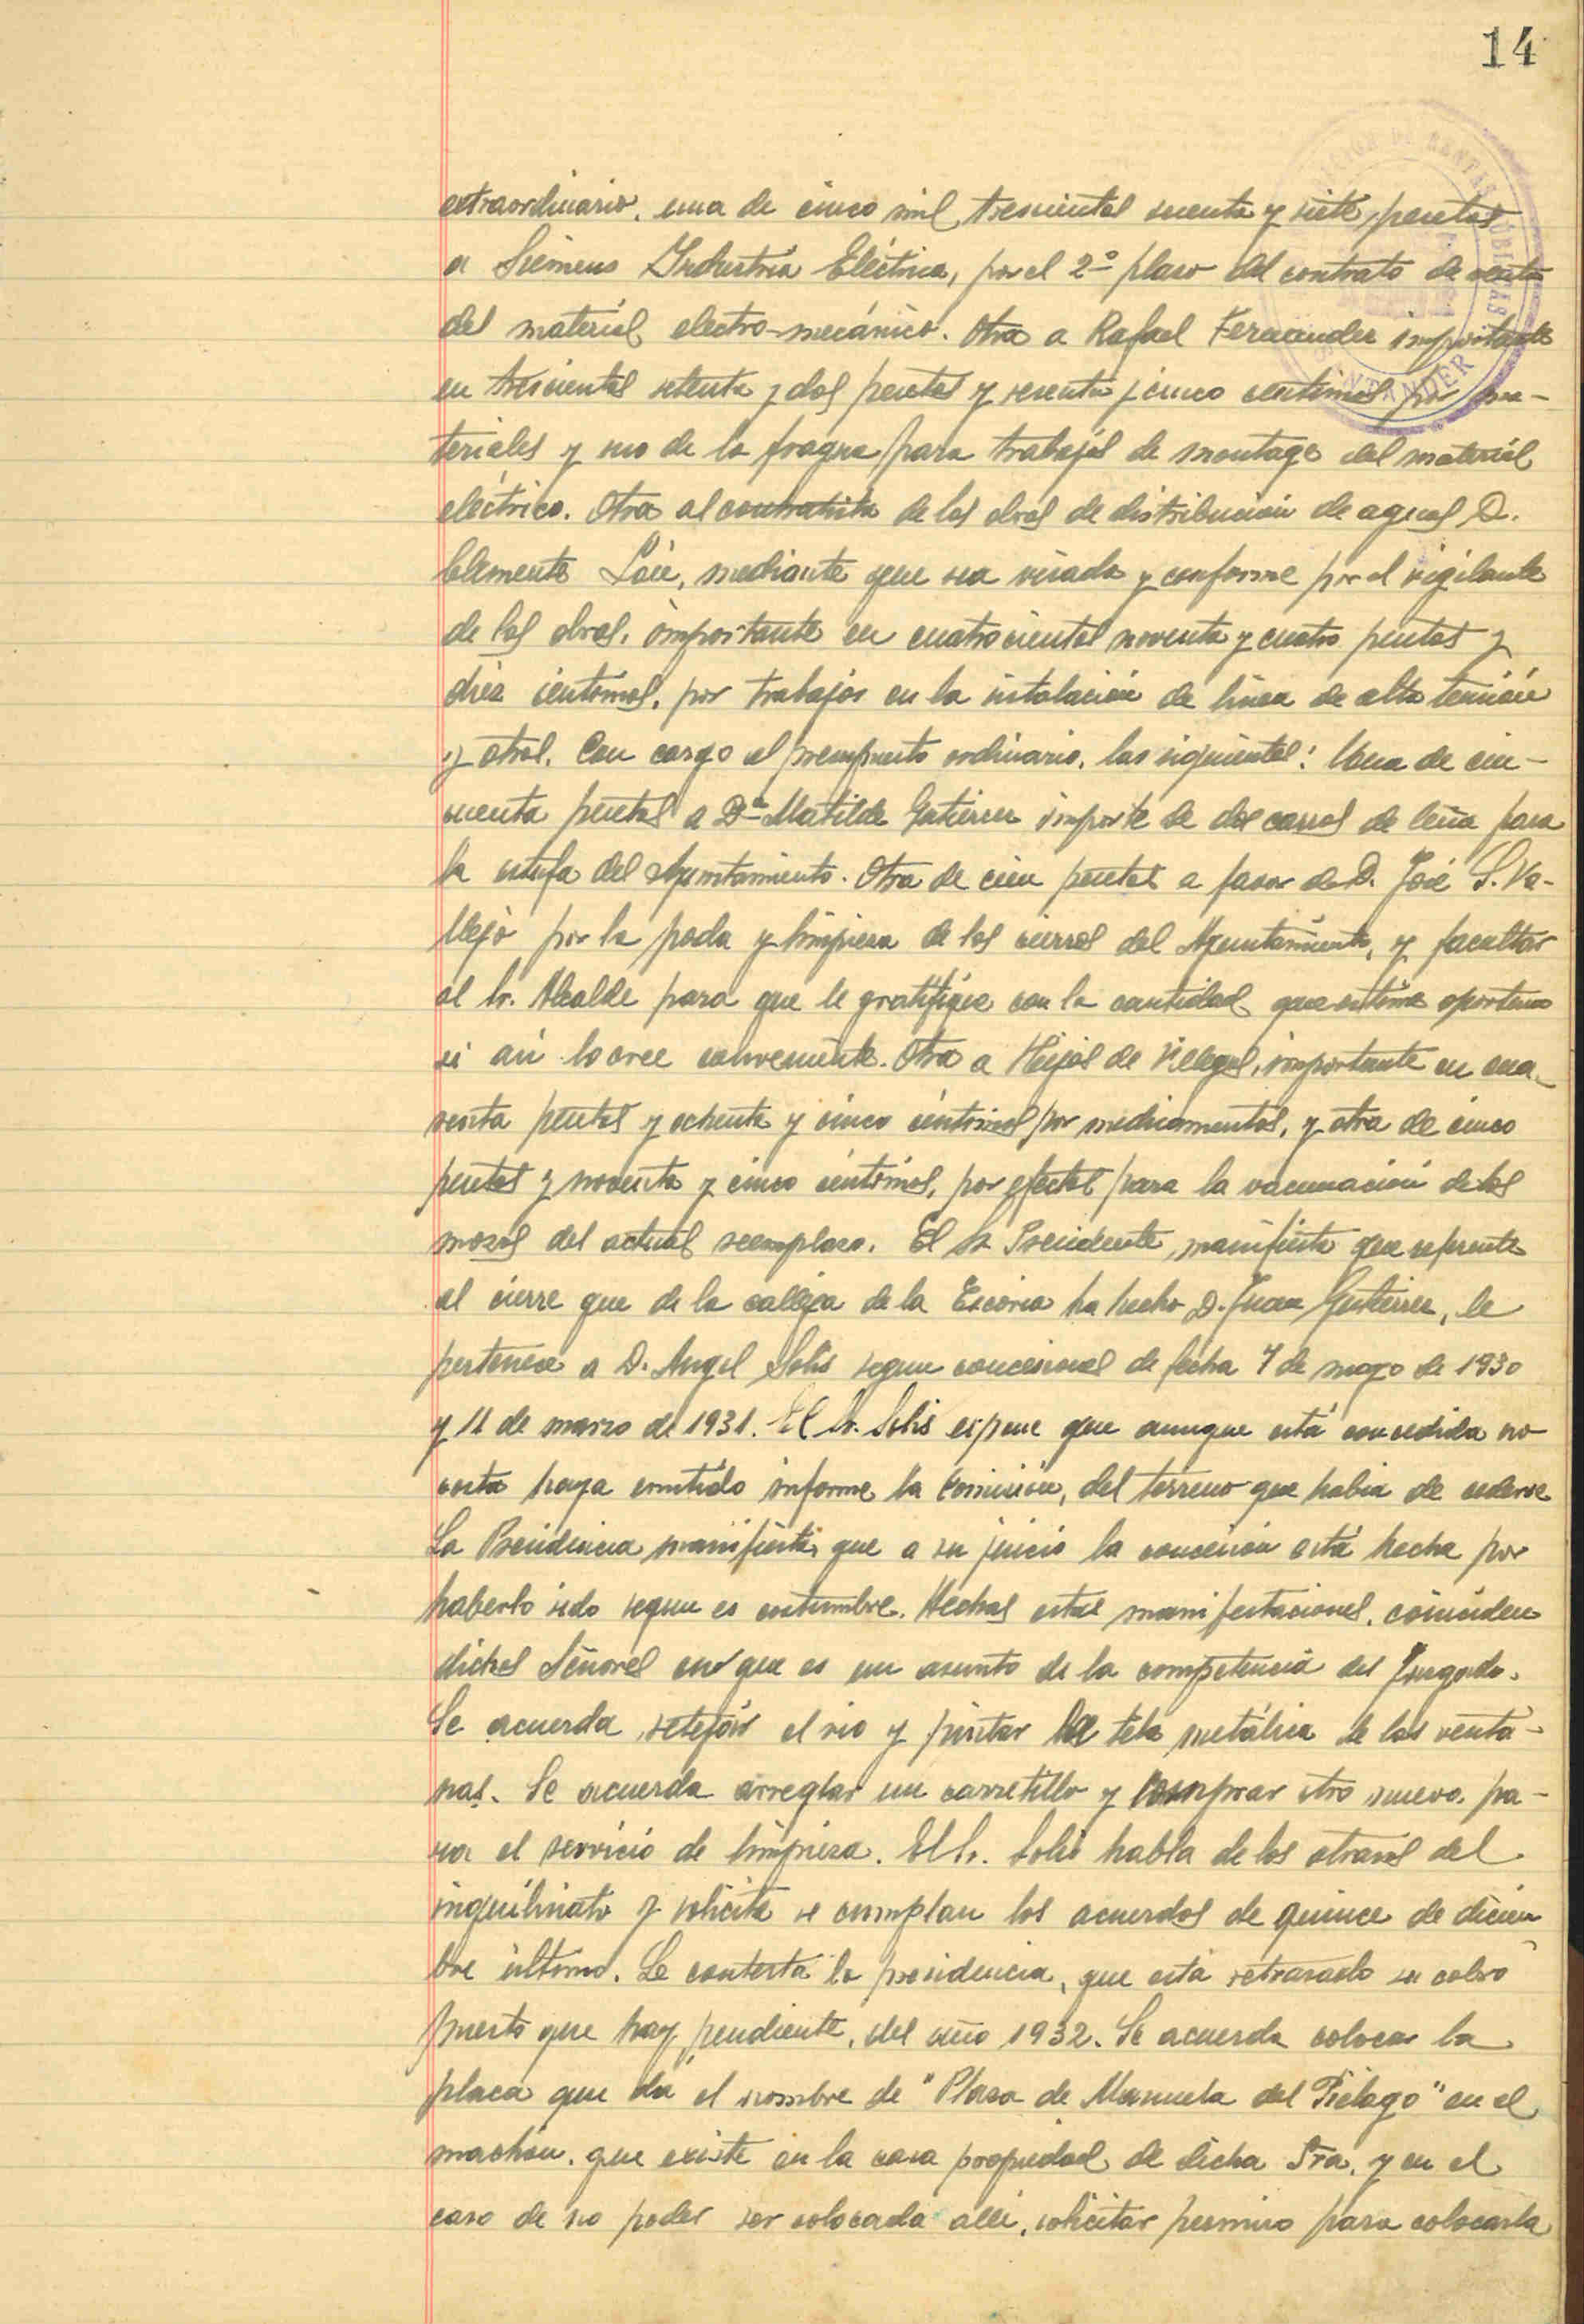 14
extraordinario, una de cinco mil trescientas y siete, pesetas
a Siemens Industria Eléctrica, por el 2º plazo del contrato de venta
del material electro-mecánico. Otra a Rafael Fernandez importante
en trescientas setenta y dos pesetas y sesenta y cinco centimos por ma-
teriales y uso de la fragua para trabajos de montage del material
eléctrico. Otra al contratista de las obras de distribución de aguas D.
Clemente mediante que sea visada y conforme por el vigilante
de las obras, importante en cuatrocientas noventa y cuatro pesetas y
diez centimos, por trabajos en la instalación de linea de alta tensión
y otros. Con cargo al presupuesto ordinario, las siguientes: Una de cin-
cuenta pesetas a Dª Matilde Gutierrez importe de dos carros de leña para
la estufa del Ayuntamiento. Otra de cien pesetas a favor de D. José S. Va-
llejo por la poda y limpieza de los cierros del Ayuntamiento, y facultar
al Sr. Alcalde para que le gratifique con la cantidad que estime oportuno
si asi lo cree conveniente. Otra a Hijos de Villegas, importante en cua-
renta pesetas y ochenta y cinco centimos por medicamentos, y otra de cinco
pesetas y noventa y cinco centimos, por efectos para la vacunación de los
mozos del actual reemplazo. El Sr Presidente, manifiesta que referente
al cierre que de la calleja de la Escoria ha hecho D. Juan Gutierrez, le
pertenece a D. Angel Solis segun concesiones de fecha 7 de mayo de 1930
y 11 de marzo de 1931. El Sr. Solis expone que aunque está concedida no
consta haya emitido informe la Comisión, del terreno que habia de cederse
La Presidencia manifiesta que a su juicio la concesión está hecha por
haberlo sido segun es costumbre. Hechas estas manifestaciones, coinciden
dichos Señores en que es un asunto de la competencia del Juzgado.
Se acuerda, retejar el rio y pintar la tela metálica de las venta-
nas. Se acuerda arreglar un carretillo y comprar otro nuevo, pa-
ra el servicio de limpieza. El Sr. Solis habla de los atrasos del
inquilinato y solicita se cumplan los acuerdos de quince de diciem
bre último. Le contesta la presidencia, que está retrasado su cobro
puesto que hay pendiente, del año 1932. Se acuerda colocar la
placa que da el nombre de "Plaza de Manuela del Piélago" en el
machón, que existe en la casa propiedad de dicha Sra, y en el
caso de no poder ser colocada alli, solicitar permiso para colocarla